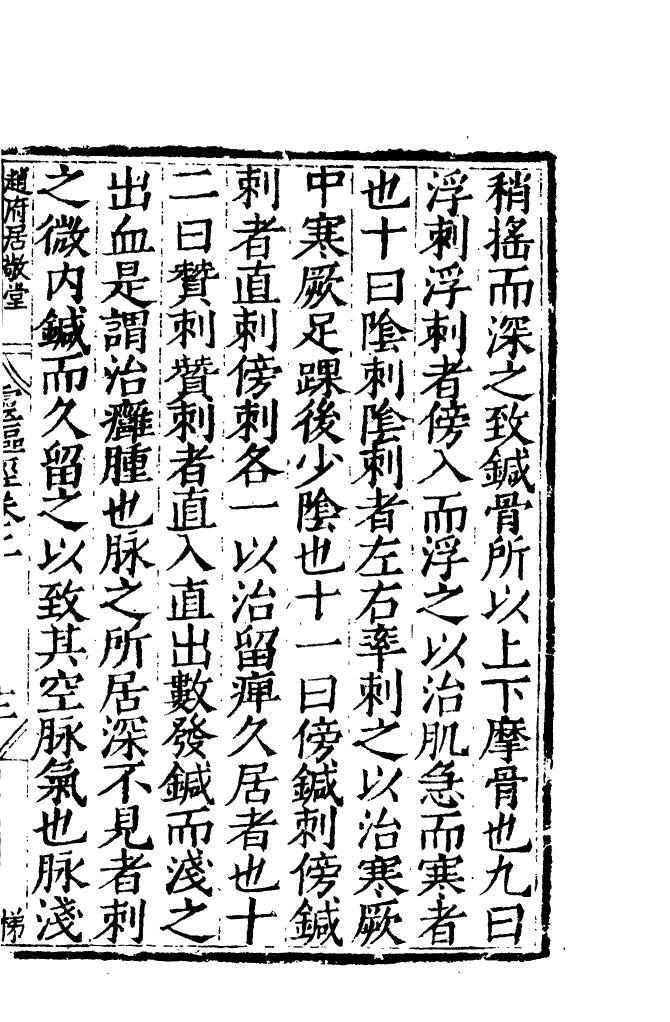 稍搖而深之致鍼骨所以上下摩骨也九曰
浮刺浮刺者傍入而浮之以治肌急而寒者
也十曰陰刺陰刺者左右率刺之以治寒厥
中寒厥足踝後少陰也十一曰傍鍼刺傍鍼
刺者直刺傍刺各一以治留痺久居者也十
二曰贊刺贊刺者直入直出數發鍼而淺之
出血是謂治癰腫也脉之所居深不見者刺
之微内鍼而久留之以致其空脉氣也脉淺
趙府居敬堂